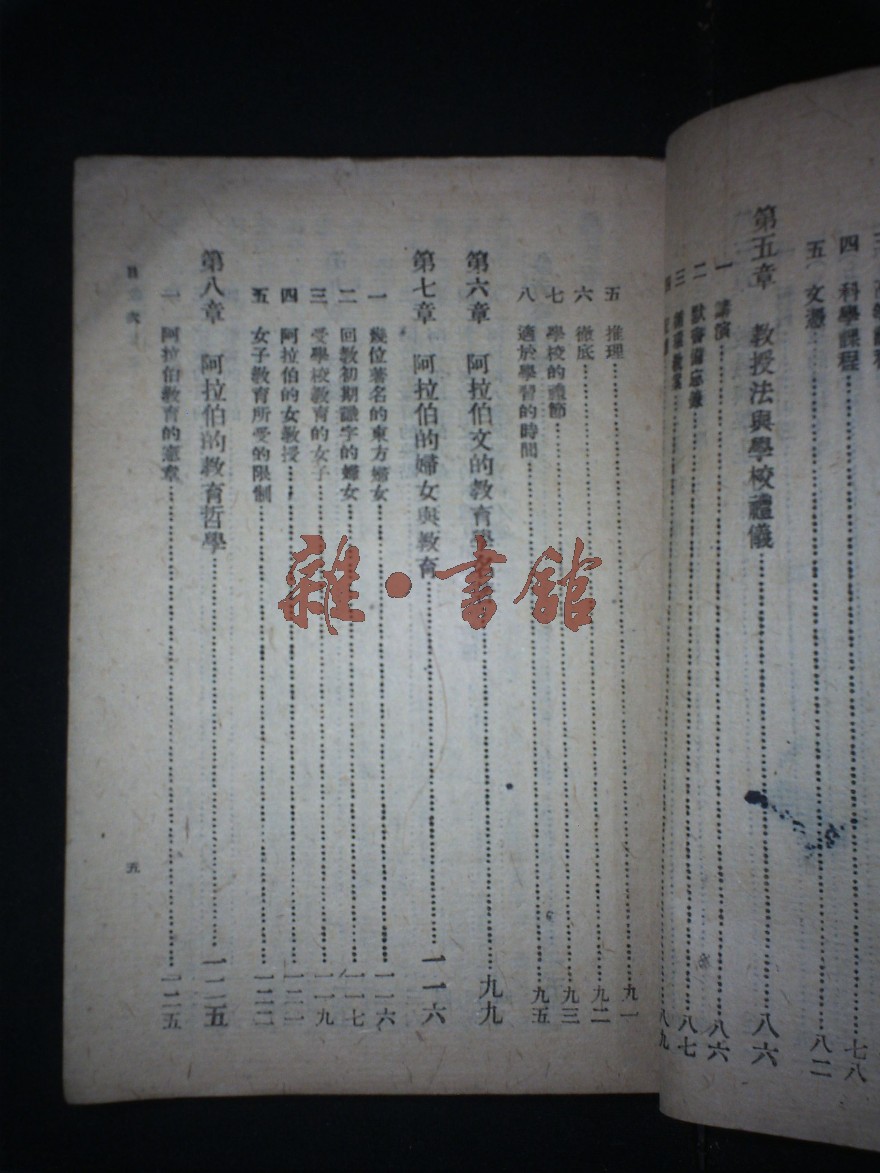 四 科學課程……七八
五 文憑……八二
第五章 教授法與學校禮儀……八六
一 講演……八六
二……八七
三……八九
五 推理……九一
六 徹底……九二
七 學校的禮節……九三
八 適於學習的時間……九五
第六章 阿拉伯文的教育學……九九
第七章 阿拉伯的婦女與教育……一一六
一 幾位著名的東方婦女……一一六
二 回教初期識字的婦女……一一七
三 受學校教育的女子……一一九
四 阿拉伯的女教授……一二一
五 女子教育所受的限制……一二二
第八章 阿拉伯的教育哲學……一二五
一 阿拉伯教育的憲章……一二五
目 次
五
雜·書館